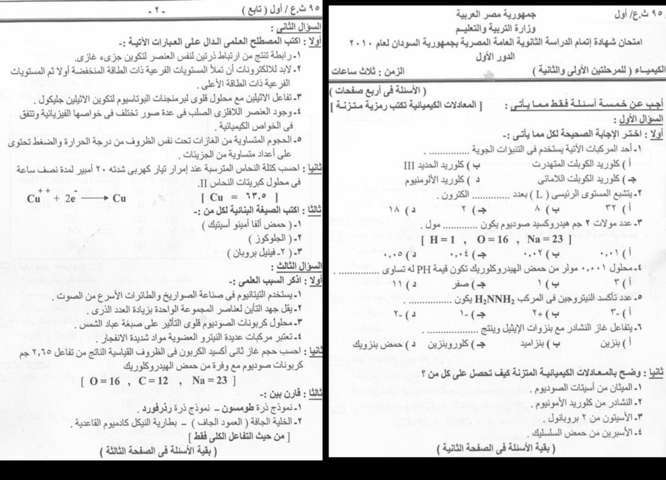 ٩٥ ث.ع/ أول
جمهورية مصر العربية
وزارة التربية والتعليم
امتحان شهادة إتمام الدراسة الثانوية العامة المصرية بجمهورية السودان لعام ٢٠١٠
الدور الأول
الكيمياء ( للمرحلتين الأولى والثانية )
الزمن : ثلاث ساعات
( الأسئلة فى أربع صفحات )
أجب عن خمسة أسئلة فقط مما يأتى :
[ المعادلات الكيميائية تكتب رمزية متزنة ]
السؤال الأول :
أولا : اختر الإجابة الصحيحة لكل مما يأتى :-
١- أحد المركبات الآتية يستخدم فى التنبؤات الجوية ..............
أ ) كلوريد الكوبلت المتهدرت
ب ) كلوريد الحديد III
جـ ) كلوريد الكوبلت اللامائى
د ) كلوريد الألومنيوم
٢- يتشبع المستوى الرئيسى ( L ) بعدد .............. الكترون .
أ ) ٣٢ ب ) ٨ جـ ) ٢ د ) ١٨
٣- عدد مولات ٢ جم هيدروكسيد صوديوم يكون .............. مول .
[ H = 1 , O = 16 , Na = 23 ]
أ ) ٠,٠١ ب ) ٠,٠٢ جـ ) ٠,٠٤ د ) ٠,٠٥
٤- محلول ٠,٠٠١ مولر من حمض الهيدروكلوريك تكون قيمة PH له تساوى ..............
أ ) ٣ ب ) ١ جـ ) صفر د ) ١١
٥- عدد تأكسد النيتروجين فى المركب H₂NNH₂ يكون ..............
أ ) -٣ ب ) +٢ جـ ) -١ د ) -٢
٦- يتفاعل غاز النشادر مع بنزوات الإيثيل وينتج ..............
أ ) بنزين ب ) بنزاميد جـ ) كلوروبنزين د ) حمض بنزويك
ثانيا : وضح بالمعادلات الكيميائية المتزنة كيف تحصل على كل من ؟
١- الميثان من أسيتات الصوديوم .
٢- النشادر من كلوريد الأمونيوم .
٣- الأسيتون من ٢ بروبانول .
٤- الأسبرين من حمض السلسليك .
( بقية الأسئلة فى الصفحة الثانية )
٩٥ ث.ع/ أول ( تابع )
- ٢ -
السؤال الثانى :
أولا : اكتب المصطلح العلمى الدال على العبارات الآتية :-
١- رابطة تنتج من ارتباط ذرتين لنفس العنصر لتكوين جزىء غازى.
٢- لابد للالكترونات أن تملأ المستويات الفرعية ذات الطاقة المنخفضة أولا ثم المستويات
الفرعية ذات الطاقة الأعلى .
٣- تفاعل الاثيلين مع محلول قلوى لبرمنجنات البوتاسيوم لتكوين الاثيلين جليكول .
٤- وجود العنصر اللافلزى الصلب فى عدة صور تختلف فى خواصها الفيزيائية وتتفق
فى الخواص الكيميائية .
٥- الحجوم المتساوية من الغازات تحت نفس الظروف من درجة الحرارة والضغط تحتوى
على أعداد متساوية من الجزيئات .
ثانيا : احسب كتلة النحاس المترسبة عند إمرار تيار كهربى شدته ٢٠ أمبير لمدة نصف ساعة
فى محلول كبريتات النحاس II.
[ Cu = ٦٣,٥ ] Cu⁺⁺ + 2e⁻ ⟶ Cu
ثالثا : اكتب الصيغة البنائية لكل من :-
١- ( حمض ألفا أمينو أسيتيك )
٢- ( الجلوكوز )
٣- ( ٢- فينيل بروبان )
السؤال الثالث :
أولا : اذكر السبب العلمى :-
١- يستخدم التيتانيوم فى صناعة الصواريخ والطائرات الأسرع من الصوت .
٢- يقل جهد التأين لعناصر المجموعة الواحدة بزيادة العدد الذرى .
٣- محلول كربونات الصوديوم قلوى التأثير على صبغة عباد الشمس .
٤- تعتبر مركبات عديدة النيترو العضوية مواد شديدة الانفجار .
ثانيا : احسب حجم غاز ثانى أكسيد الكربون فى الظروف القياسية الناتج من تفاعل ٢,٦٥ جم
كربونات صوديوم مع وفرة من حمض الهيدروكلوريك
[ O = 16 , C = 12 , Na = 23 ]
ثالثا : قارن بين :-
١- نموذج ذرة طومسون – نموذج ذرة رذرفورد .
٢- الخلية الجافة ( العمود الجاف ) – بطارية النيكل كادميوم القاعدية .
[ من حيث التفاعل الكلى فقط ]
( بقية الأسئلة فى الصفحة الثالثة )